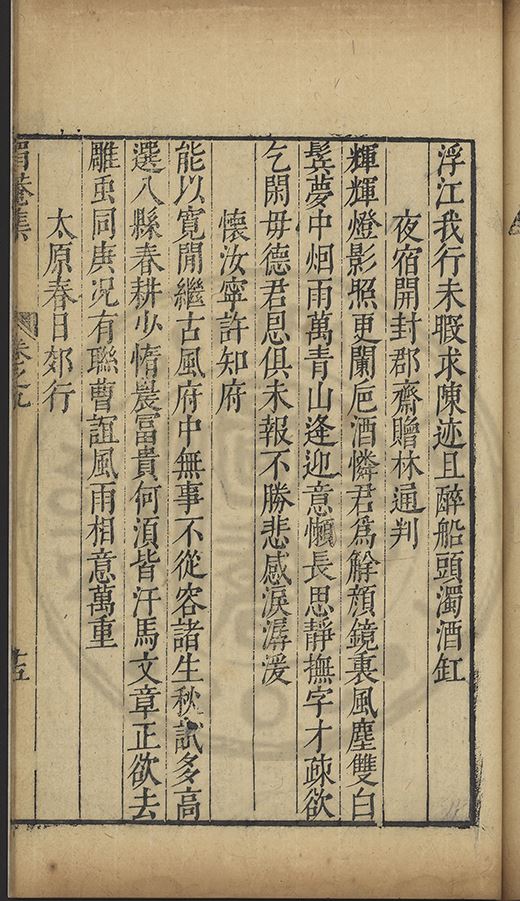 浮江我行未暇求陳迹且醉船頭濁酒缸
夜宿開封郡齋贈林通判
輝輝燈影照更闌巵酒憐君爲解顔鏡裏風塵雙白
鬂夢中烟雨萬青山逢迎意懶長思靜撫字才疎欲
乞閑毋德君恩俱未報不勝悲感淚潺湲
懷汝寧許知府
能以寛閒繼古風府中無事不從容諸生秋試多高
選八縣春耕少惰農冨貴何須皆汗馬文章正欲去
雕虫同庚况有聯曹誼風雨相意萬重
太原春日郊行
菴集 卷之九 十五